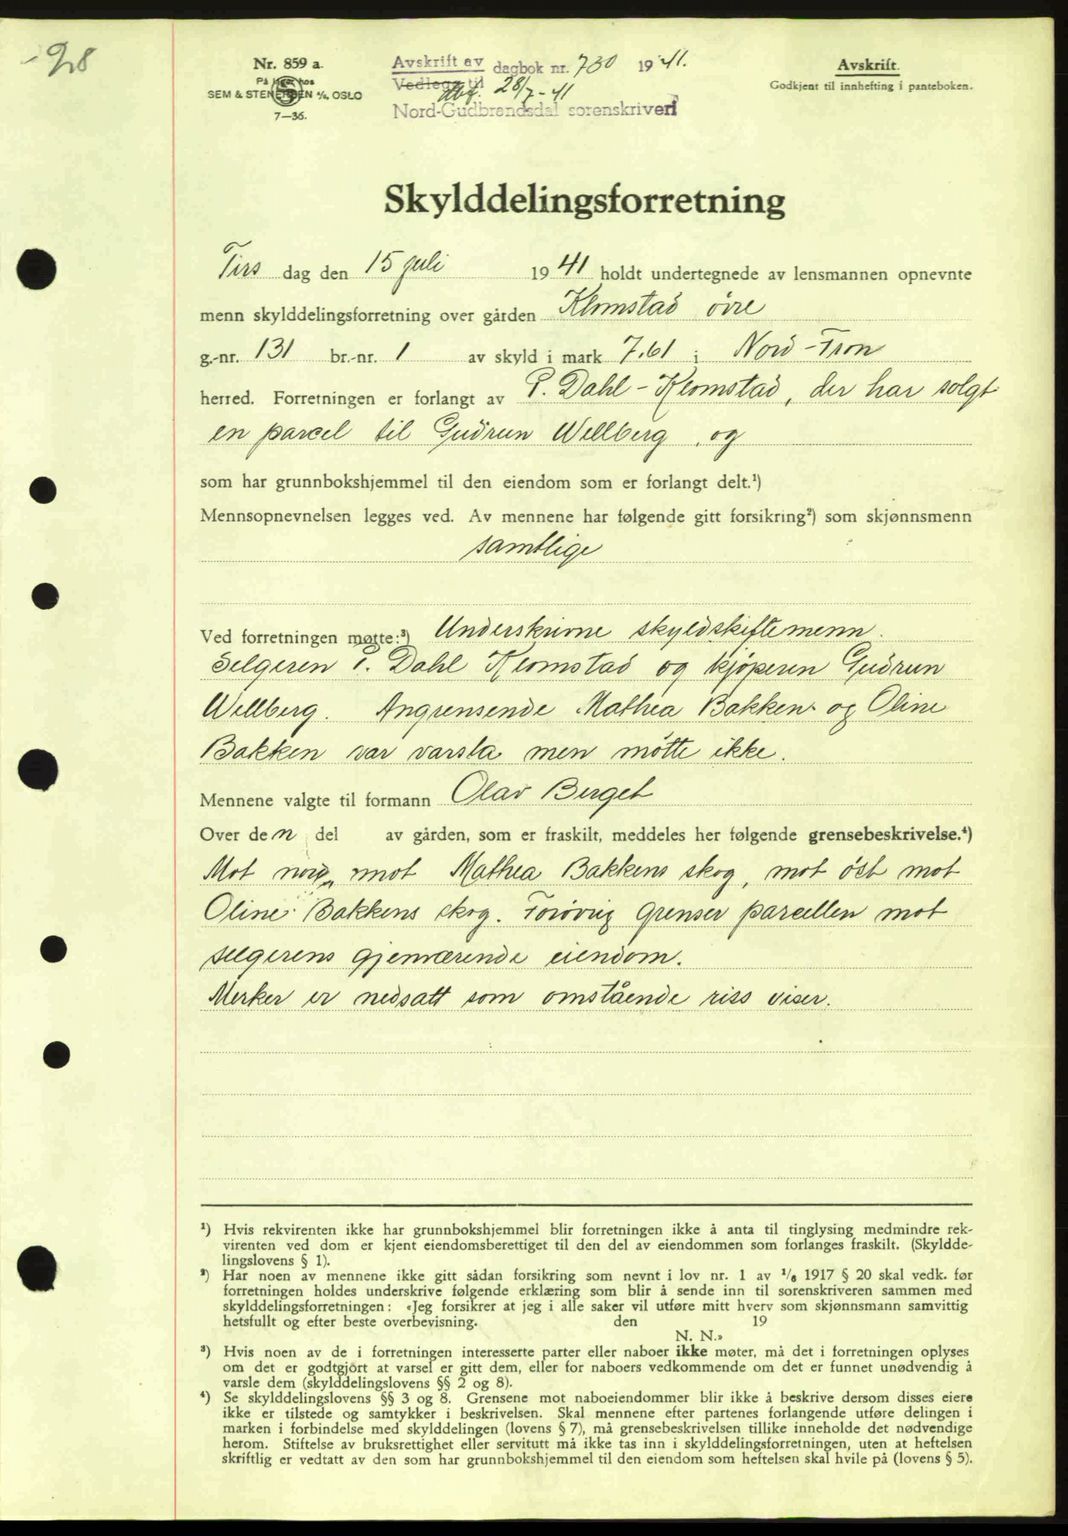 -98
Nr. 859 a.
På lager hos
SEM & STENERSEN A/S, OSLO
7—36.
Avskrift av dagbok nr. 730 1941.
Vedlegg til dbf. 28/7-41
Nord-Gudbrandsdal sorenskriveri
Avskrift.
Godkjent til innhefting i panteboken.
Skylddelingsforretning
Tirs dag den 15 juli 1941 holdt undertegnede av lensmannen opnevnte
menn skylddelingsforretning over gården Klomstad øvre
g.-nr. 131 br.-nr. 1 av skyld i mark 7.61 i Nord-Fron
herred. Forretningen er forlangt av P. Dahl-Klomstad, der har solgt
en parcel til Gudrun Wellberg, og
som har grunnbokshjemmel til den eiendom som er forlangt delt.¹)
Mennsopnevnelsen legges ved. Av mennene har følgende gitt forsikring²) som skjønnsmenn
samtlige
Ved forretningen møtte:³) Underskrivne skyldskiftemenn.
Selgeren P. Dahl Klomstad og kjøperen Gudrun
Wellberg. Angrensende Mathea Bakken og Oline
Bakken var varsla men møtte ikke.
Mennene valgte til formann Olav Berget
Over den del av gården, som er fraskilt, meddeles her følgende grensebeskrivelse.⁴)
Mot nord, mot Mathea Bakkens skog, mot øst mot
Oline Bakkens skog. Forøvrig grenser parcellen mot
selgerens gjenværende eiendom.
Merker er nedsatt som omstående riss viser.
¹) Hvis rekvirenten ikke har grunnbokshjemmel blir forretningen ikke å anta til tinglysing medmindre rek-
virenten ved dom er kjent eiendomsberettiget til den del av eiendommen som forlanges fraskilt. (Skyldde-
lingslovens § 1).
²) Har noen av mennene ikke gitt sådan forsikring som nevnt i lov nr. 1 av 1/6 1917 § 20 skal vedk. før
forretningen holdes underskrive følgende erklæring som blir å sende inn til sorenskriveren sammen med
skylddelingsforretningen: «Jeg forsikrer at jeg i alle saker vil utføre mitt hverv som skjønnsmann samvittig
hetsfullt og efter beste overbevisning. den 19
N. N.»
³) Hvis noen av de i forretningen interesserte parter eller naboer ikke møter, må det i forretningen oplyses
om det er godtgjort at varsel er gitt dem, eller for naboers vedkommende om det er funnet unødvendig å
varsle dem (skylddelingslovens §§ 2 og 8).
⁴) Se skylddelingslovens §§ 3 og 8. Grensene mot naboeiendommer blir ikke å beskrive dersom disses eiere
ikke er tilstede og samtykker i beskrivelsen. Skal mennene efter partenes forlangende utføre delingen i
marken i forbindelse med skylddelingen (lovens § 7), må grensebeskrivelsen tillike inneholde det nødvendige
herom. Stiftelse av bruksrettighet eller servitutt må ikke tas inn i skylddelingsforretningen, uten at heftelsen
skriftlig er vedtatt av den som har grunnbokshjemmel til den eiendom som heftelsen skal hvile på (lovens § 5).